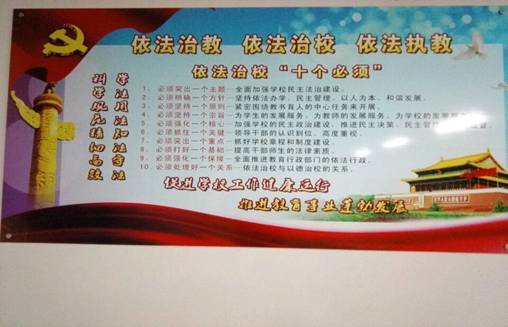 依法治教 依法治校 依法执教
依法治校“十个必须”
学法用法
知法守法
1、必须突出一个主题—全面加强学校民主法治建设。
2、必须明确一个方针—坚持依法办学、民主管理、以人为本、和谐发展。
3、必须坚持一个原则—紧密围绕教书育人的中心任务来开展。
4、必须坚持一个宗旨—为学生的发展服务、为教师的发展服务、为学校的发展服务
5、必须强化一个核心—加强学校的民主政治建设，推进民主决策、民主管理
6、必须抓住一个关键—领导干部的认识到位、高度重视。
7、必须突出一个重点—抓好学校章程和制度建设。
8、必须打好一个基础—提高干部师生的法律素质。
9、必须强化一个保障—全面推进教育行政部门的依法行政。
10、必须处理好一个关系—依法治校与以德治校的关系。
促进学校工作健康运行
推进教育事业蓬勃发展